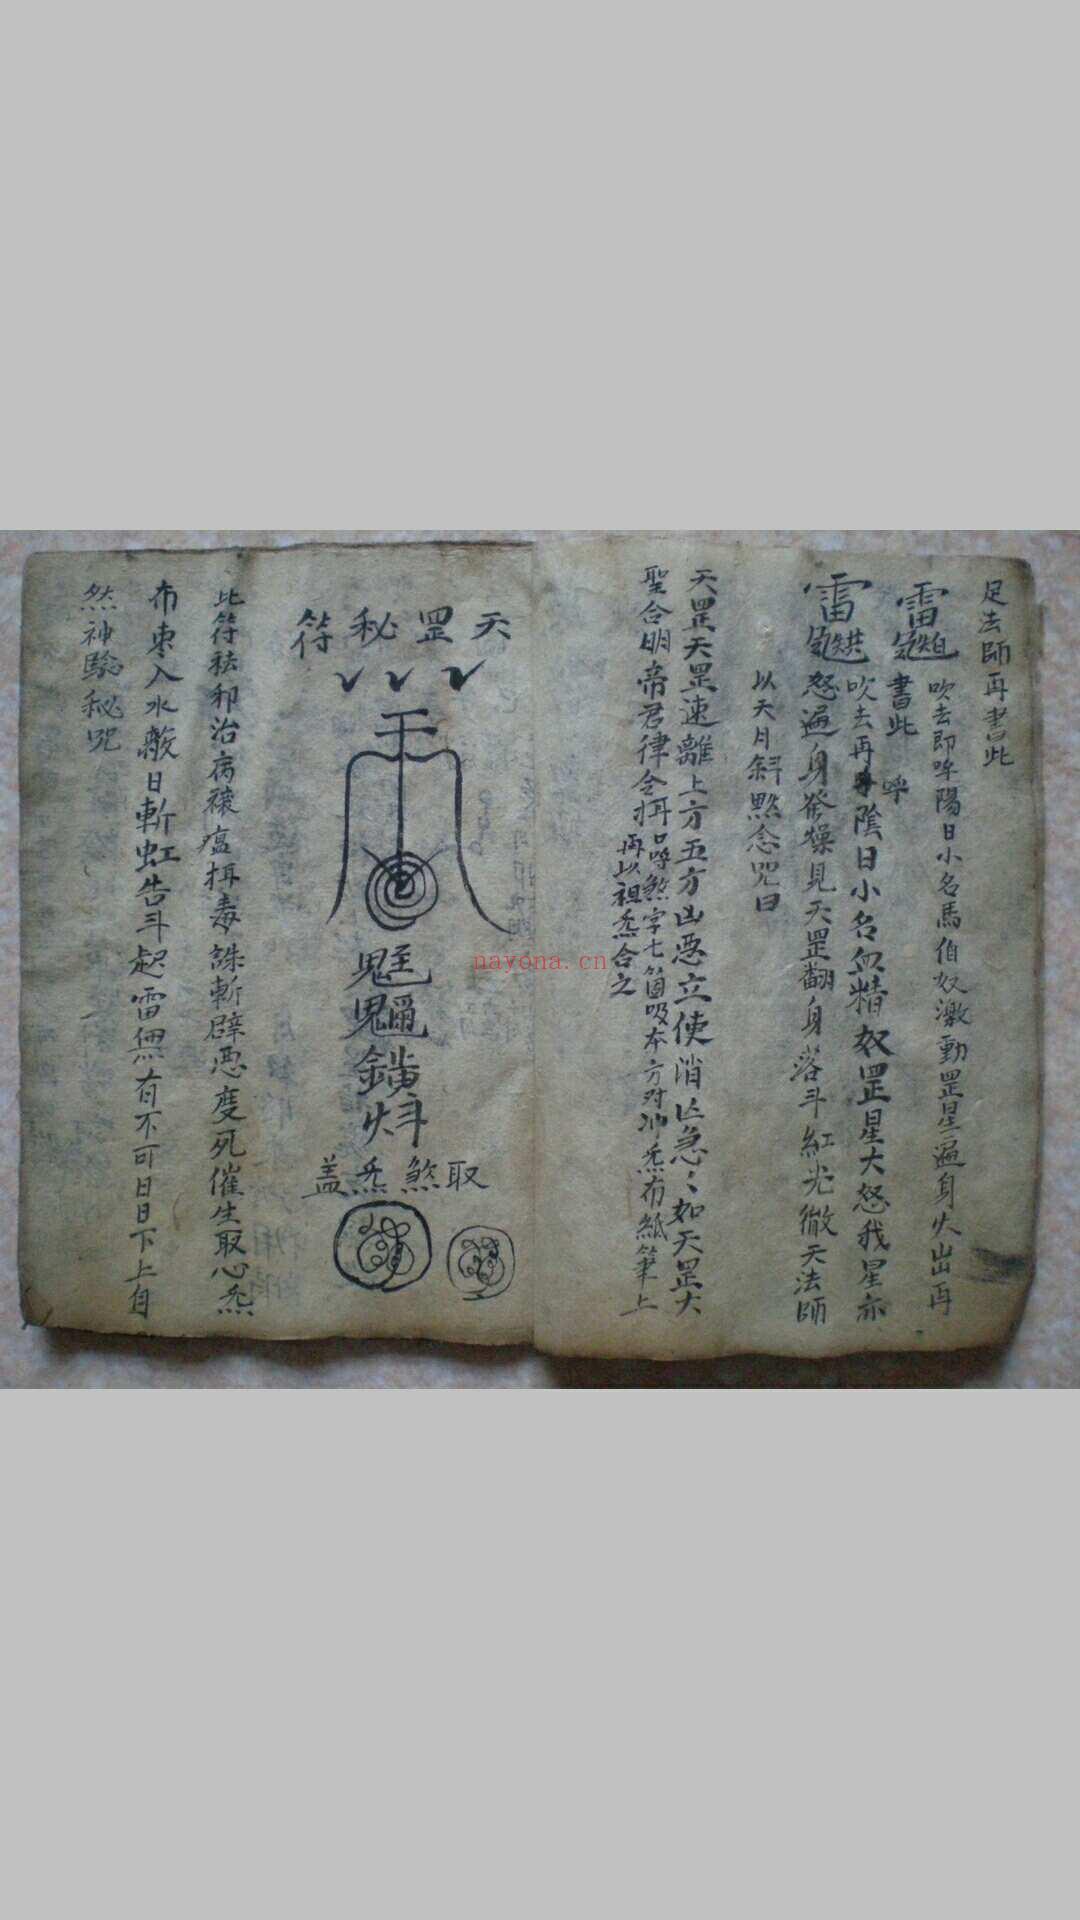 足法師再書此
吹去即呼陽日小名馬伯奴激動罡星遍身火出再
書此 呼
吹去再陰日小名血精奴罡星大怒我星亦
怒遍身發燥見天罡翻身落斗紅光徹天法師
以天月斜點念咒曰
天罡天罡速離上方五方凶惡立使消亡急〻如天罡大
聖合明帝君律令
口呼煞字七箇吸本方对冲炁布紙筆上
再以祖炁合之
天罡秘符
取煞炁盖
此符祛邪治病禳瘟
毒誅斬辟惡度死催生取心炁
布棗入水
日斬虹告斗起雷無有不可日日下上自
然神驗秘咒
nayona.cn